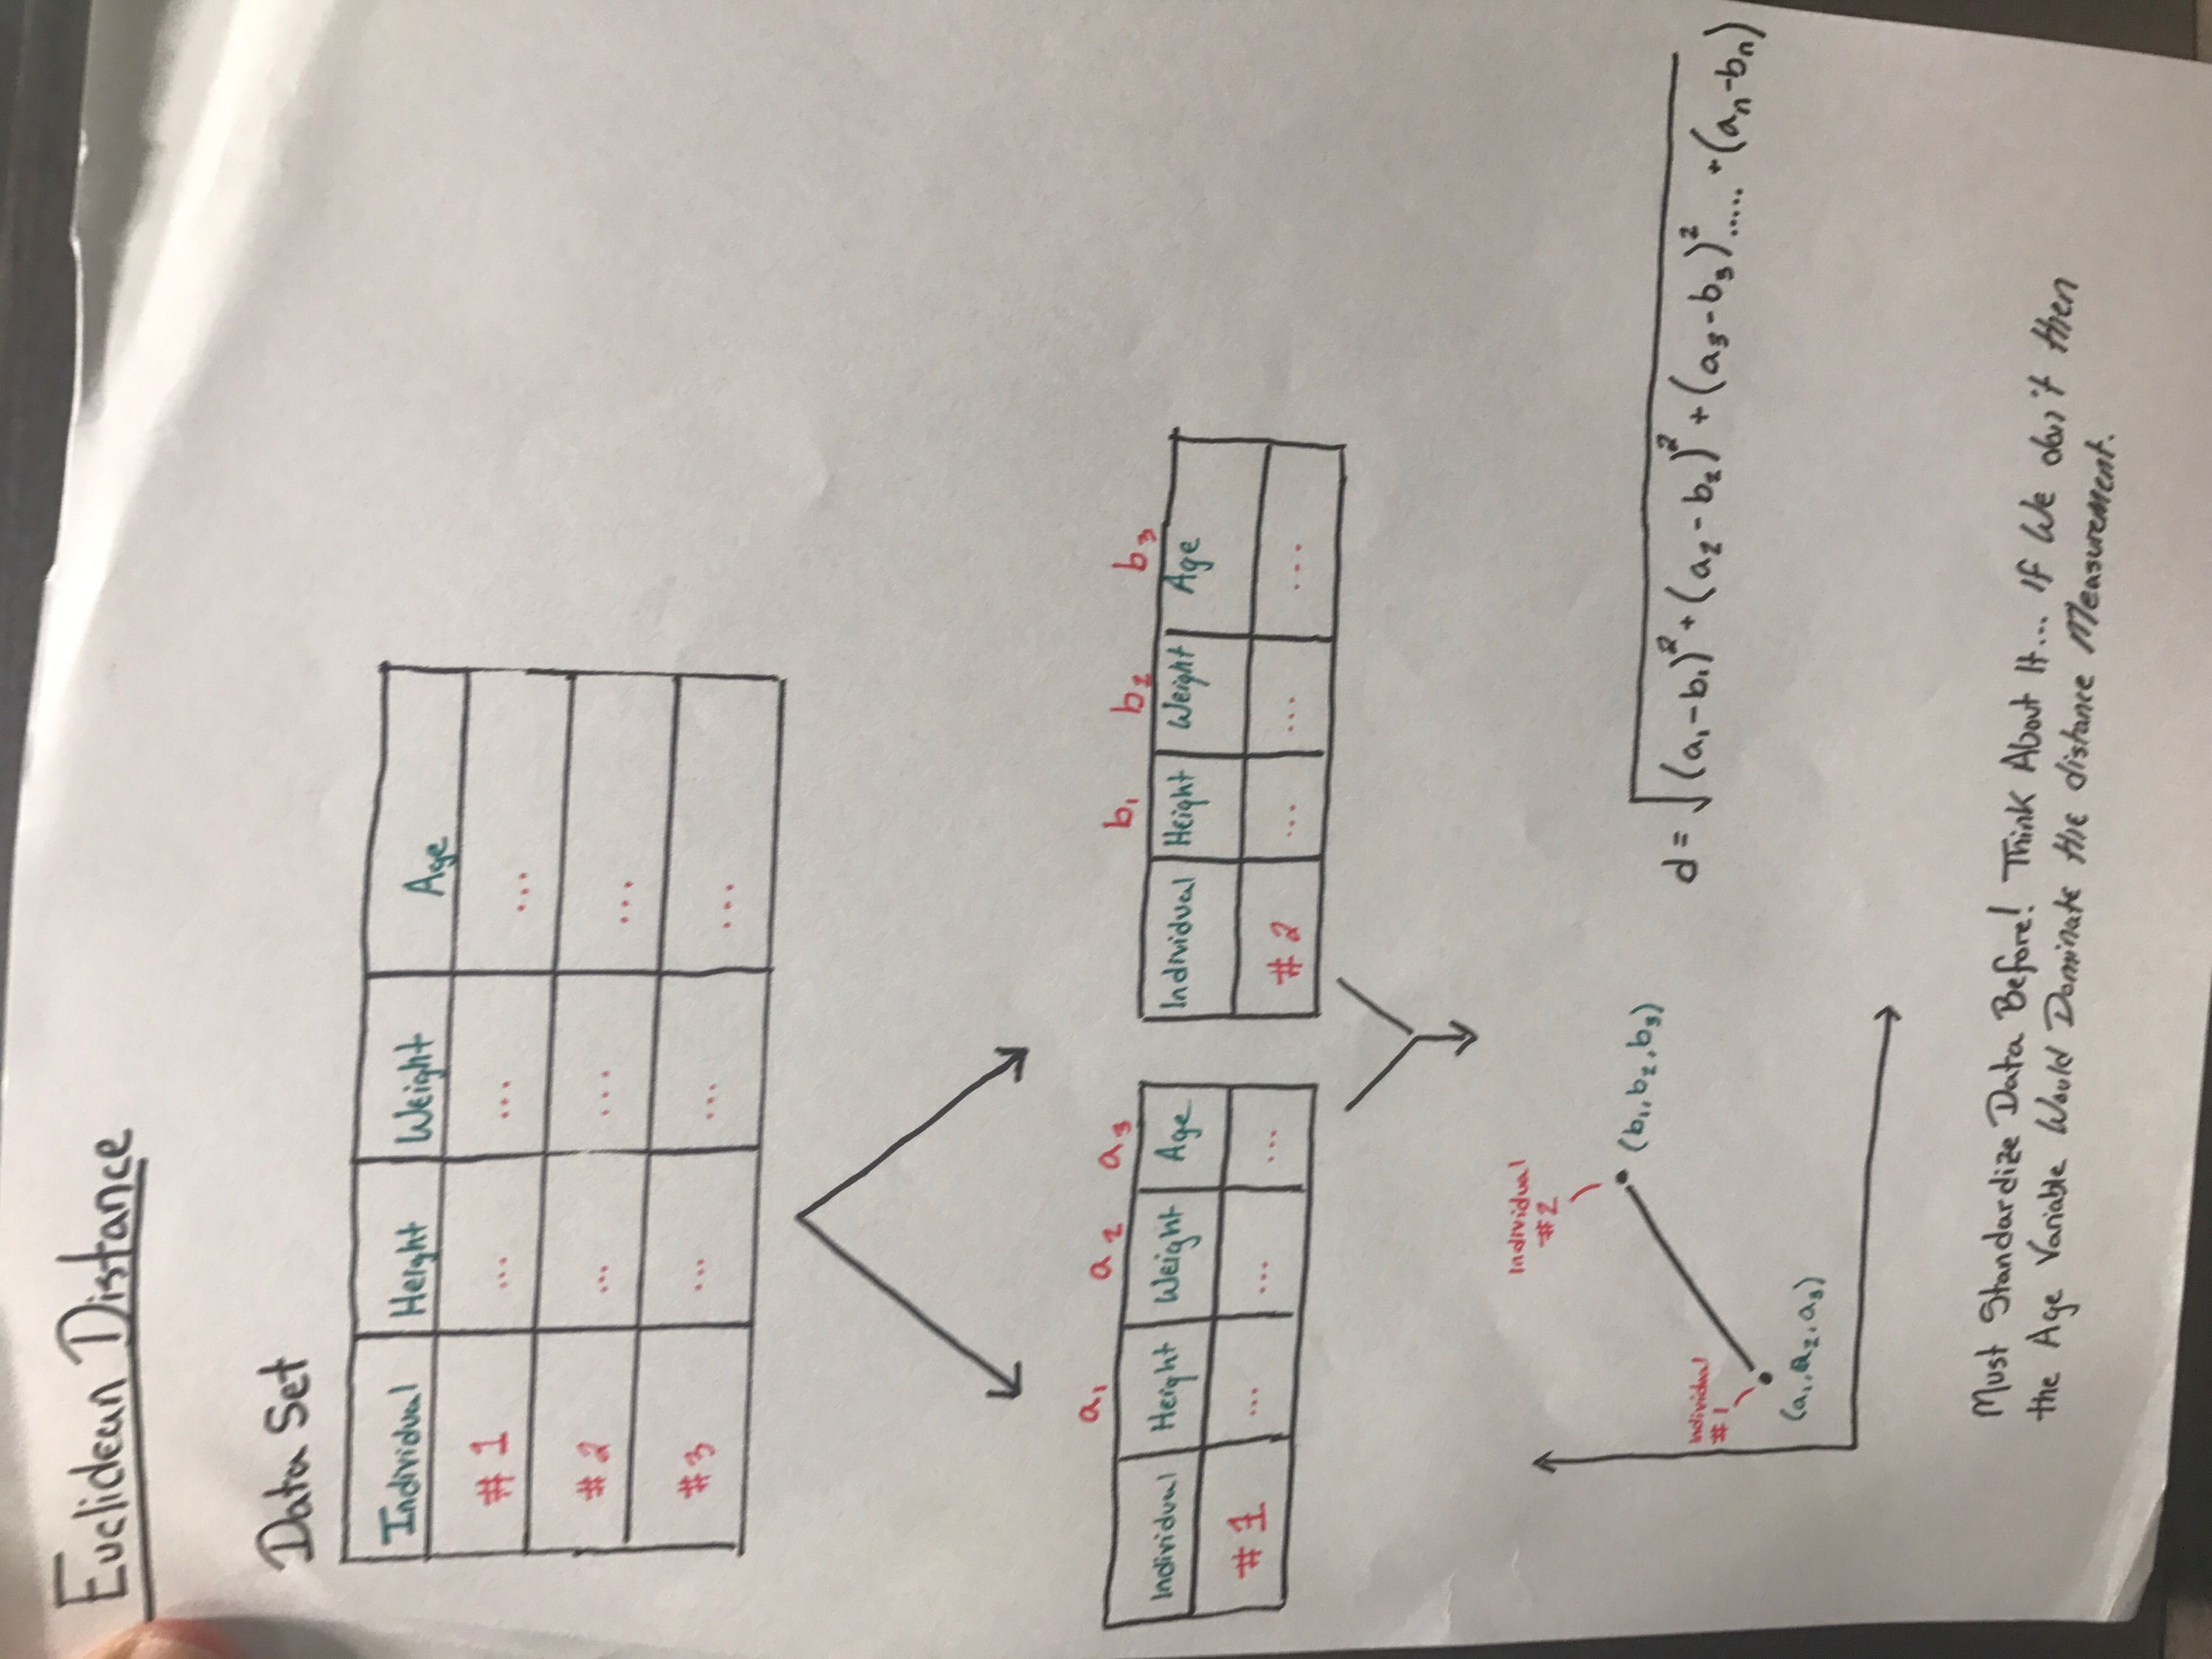 Euclidean Distance
Data Set
Individual Height Weight Age
#1 ... ... ...
#2 ... ... ...
#3 ... ... ...
a₁ a₂ a₃
Individual Height Weight Age
#1 ... ... ...
b₁ b₂ b₃
Individual Height Weight Age
#2 ... ... ...
Individual
#2
(b₁, b₂, b₃)
Individual
#1
(a₁, a₂, a₃)
d = √(a₁-b₁)² + (a₂-b₂)² + (a₃-b₃)²..... + (aₙ-bₙ)
Must Standardize Data Before! Think About It... If We don't then
the Age Variable Would Dominate the distance Measurement.